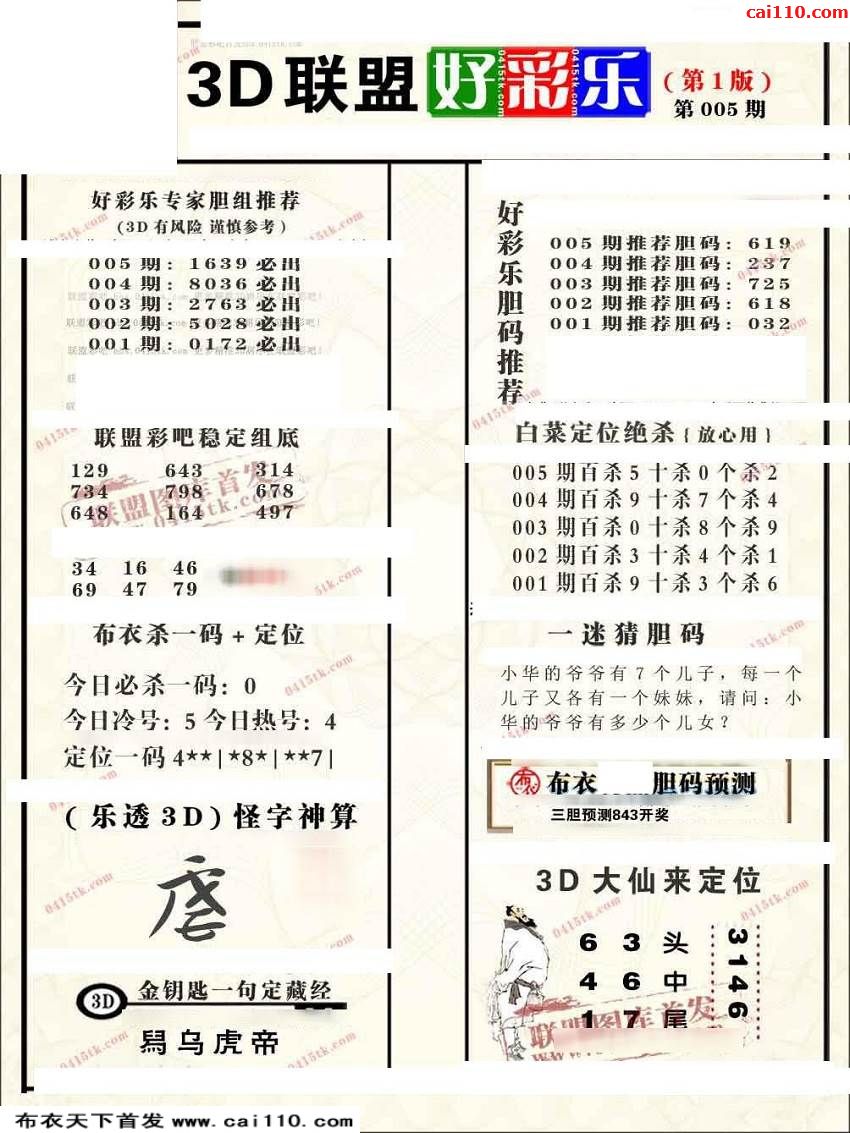 cai110.com
3D联盟好彩乐
(第1版)
第005期
好彩乐专家胆组推荐
(3D有风险 谨慎参考)
005期: 1639必出
004期: 8036必出
003期: 2763必出
002期: 5028必出
001期: 0172必出
联盟彩吧稳定组底
129 643 314
734 798 678
648 164 497
34 16 46
69 47 79
布衣杀一码+定位
今日必杀一码: 0
今日冷号: 5 今日热号: 4
定位一码4**|*8*|**7|
(乐透3D)怪字神算
3D 金钥匙一句定藏经
舄乌虎帝
好彩乐胆码推荐
005期推荐胆码: 619
004期推荐胆码: 237
003期推荐胆码: 725
002期推荐胆码: 618
001期推荐胆码: 032
白菜定位绝杀{放心用}
005期百杀5十杀0个杀2
004期百杀9十杀7个杀4
003期百杀0十杀8个杀9
002期百杀3十杀4个杀1
001期百杀9十杀3个杀6
一迷猜胆码
小华的爷爷有7个儿子,每一个
儿子又各有一个妹妹,请问:小
华的爷爷有多少个儿女?
布衣 胆码预测
三胆预测843开奖
3D大仙来定位
6 3 头
4 6 中
1 7 尾
3146
联盟图库首发
0415tk.com
布衣天下首发 www.cai110.com